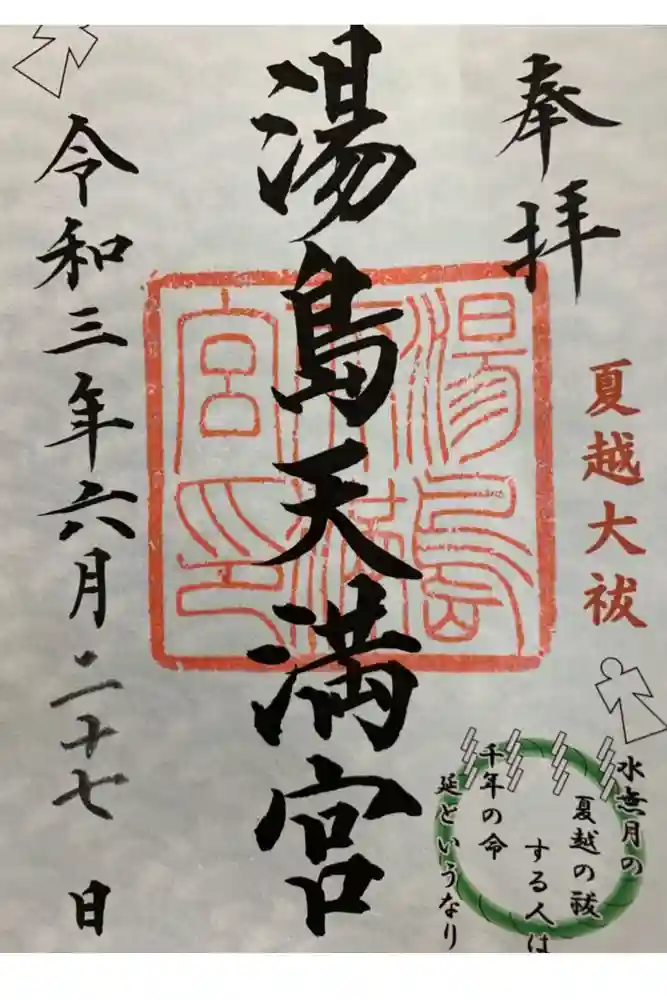 奉拝
夏越大祓
湯島天満宮
湯島天満宮印
令和三年六月二十七日
水無月の
夏越の祓
する人は
千年の命
延というなり